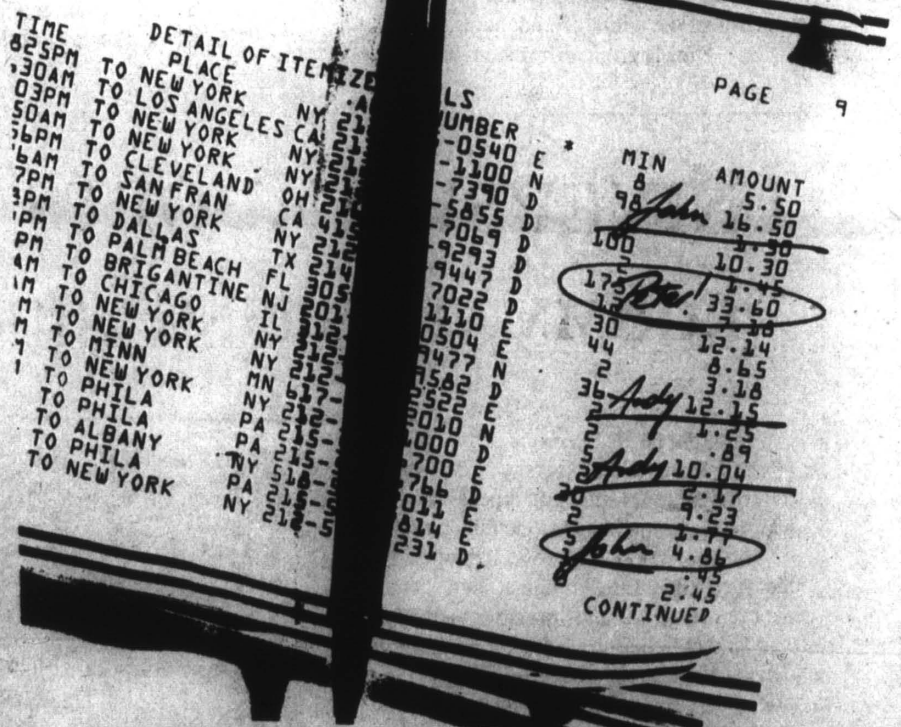 DETAIL OF ITEMIZE LS PAGE 9
TIME PLACE NUMBER * MIN AMOUNT
825PM TO NEW YORK NY -0540 E 8 5.50
30AM TO LOS ANGELES CA -1100 N 98 John 16.50
03PM TO NEW YORK NY -7390 D 1.30
50AM TO NEW YORK NY -5855 D 100 10.30
56PM TO CLEVELAND OH -7069 D 2 1.45
6AM TO SAN FRAN CA 415 -9293 D 175 Peter! 33.60
7PM TO NEW YORK NY 212 -9447 D 7.18
PM TO DALLAS TX 214 7022 D 30 12.14
PM TO PALM BEACH FL 305 1110 E 44 8.65
PM TO BRIGANTINE NJ 201 0504 E 2 3.18
AM TO CHICAGO IL 312 9477 N 36 Andy 12.15
M TO NEW YORK NY 212 9582 D 1.25
M TO NEW YORK NY 212 2522 E 2 .89
TO MINN MN 617- 2010 N Andy 10.04
TO NEW YORK NY 212- 1000 E 2.17
TO PHILA PA 215- 700 D 20 9.23
TO PHILA PA 215- 766 E 2 1.77
TO ALBANY NY 518- 011 E John 4.86
TO PHILA PA 215- 814 E .45
TO NEW YORK NY 212-5 231 D. 8 2.45
CONTINUED